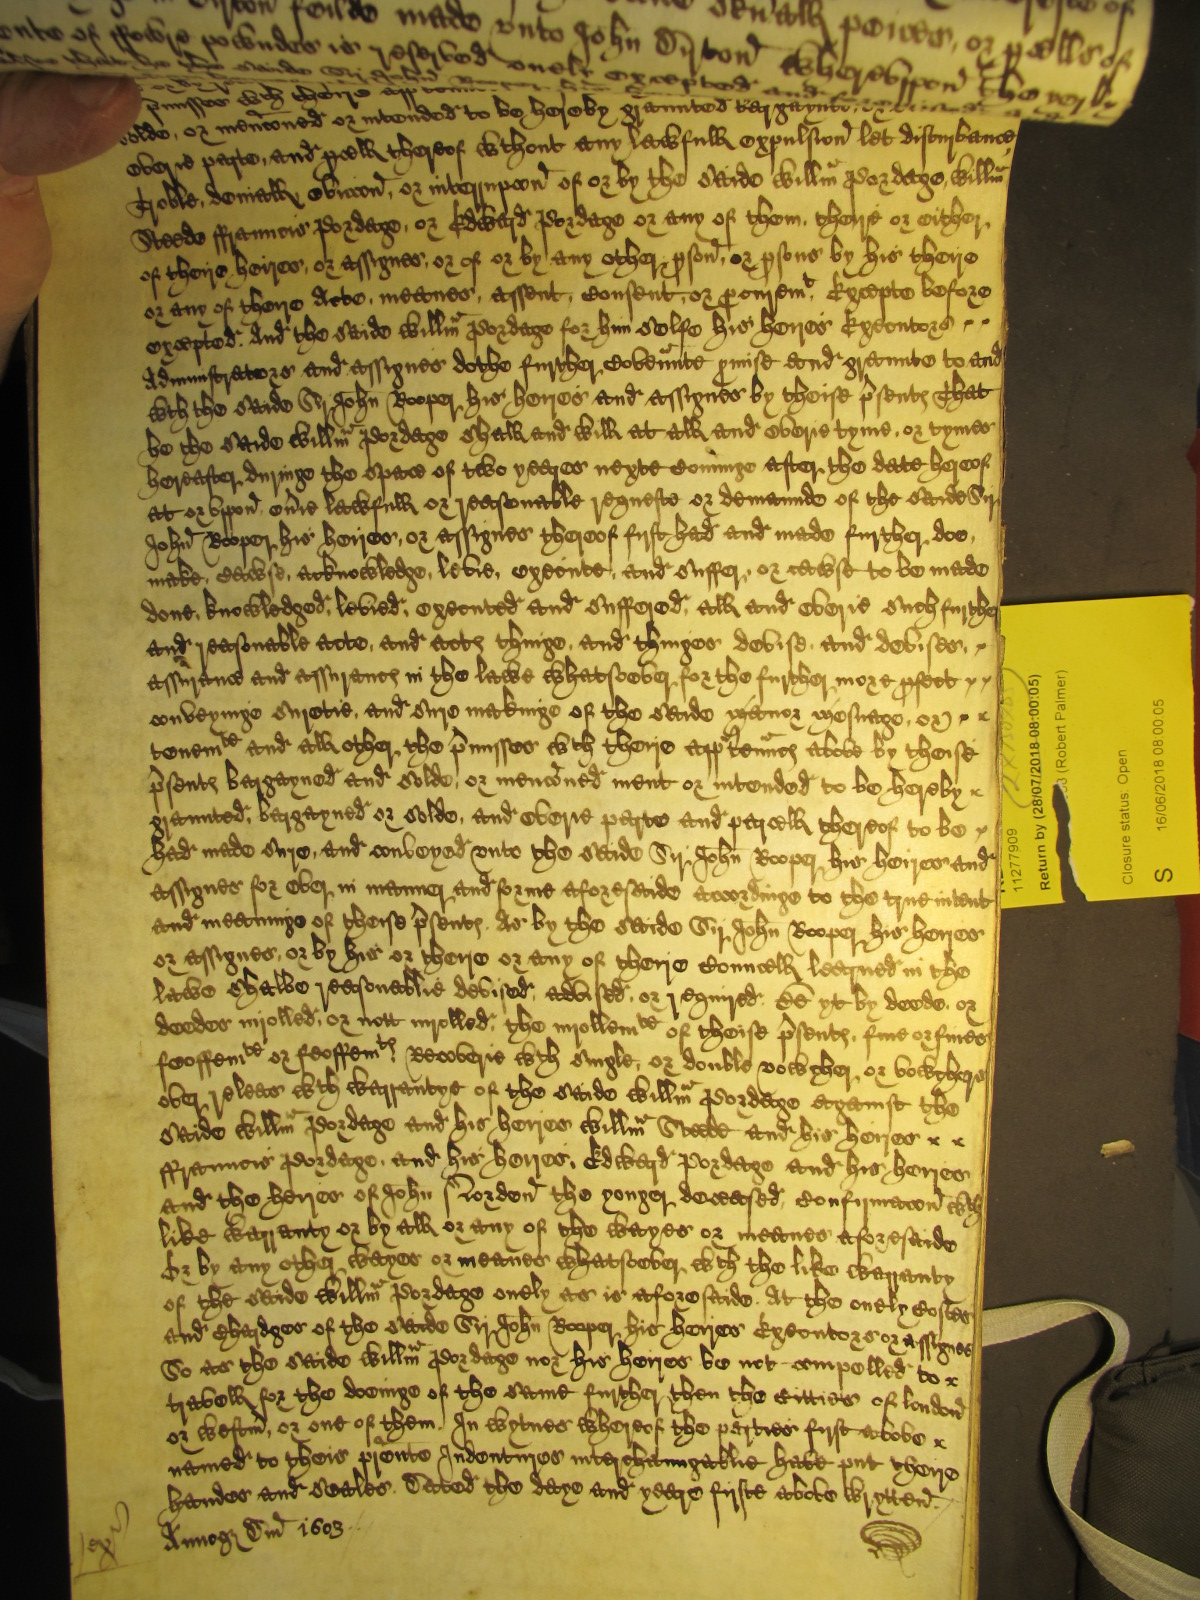 feilde made unto John Dixon whereuppon the yerly
powndes is reserved onely excepted and
p̄misses wth theire
solde, or menc̄oned or intended to be hereby graunted bargayned
everie parte, and pcell thereof wthout any lawfull expulsion let disturbance
troble, deniall evicc̄on, or interrupc̄on of or by the saide Willm̄ Pordage, Willm̄
Steede ffrauncis Pordage, or Edward Pordage or any of them, theire or either
of theire heires, or assignes, or of or by any other pson, or psons by his theire
or any of theire Acte, meanes, assent, Consent, or procuremt, Excepte before
excepted. And the saide Willm̄ Pordage for him selfe his heires Executors
Administrators and assignes dothe further Coven̄nte pmise and graunte to and
wth the saide Sir John Rooper his heires and assignes by theise p̄sents That
he the saide Willm̄ Pordage shall and will at all and everie tyme, or tymes
hereafter duringe the space of two yeares nexte Com̄inge after the date hereof
at or uppon ev̄ie lawfull or reasonable requeste or demaunde of the saide Sir
John Rooper his heires, or assignes thereof first had and made further doe,
make, cawse, acknowledge, levie, execute, and suffer, or cawse to be made
done, knowledged, levied, executed and suffered, all and everie such further
and reasonable acte, and acts thinge, and thinges devise, and devises,
assurance and assurancs in the lawe whatsoever for the further more pfect
conveyinge suretie, and sure makinge of the saide manor mesuage, or
tenemte and all other the p̄misses wth theire appten̄ncs above by theise
p̄sents bargayned and solde, or menc̄oned ment or intended to be hereby
graunted, bargayned or solde, and everie parte and parcell thereof to be
had made sure, and conveyed unto the saide Sir John Rooper his heires and
assignes for ever in manner and forme aforesaide accordinge to the true intent
and meaninge of theise p̄sents. As by the saide Sir John Rooper his heires
or assignes, or by his or theire or any of theire Councell learned in the
lawe shalbe reasonablie devised, advised, or required. Bee yt by deede, or
deedes inrolled, or nott inrolled, the inrollemte of theise p̄sents, fine or fines
feoffemte or feoffemts, Recoverie wth single, or double vowcher, or vowchers
over, releas wth warrantye of the saide Willm̄ Pordage against the
saide Willm̄ Pordage and his heires Willm̄ Steede and his heires
ffrauncis Pordage, and his heires, Edward Pordage and his heires
and the heires of John Norden the yonger deceased, Confirmac̄on wth
like warranty or by all or any of the wayes or meanes aforesaide
Or by any other wayes or meanes whatsoever wth the like warranty
of the saide Willm̄ Pordage onely as is aforesaide. At the onely Costes
and Chardges of the saide Sir John Rooper his heires Executors or assignes
So as the saide Willm̄ Pordage nor his heires be not compelled to
travell for the doeinge of the same further then the Citties of london
or westm̄, or one of them. In wytnes whereof the parties first above
named to theis p̄nte Indentures interchaungablie have put theire
handes and seales. Dated the daye and yeare firste above wrytten.
Annoq̄ Dn̄i 1603
ex
11277909
Return by (28/07/2018 08:00:05)
(Robert Palmer)
Closure status: Open
S
16/06/2018 08:00:05